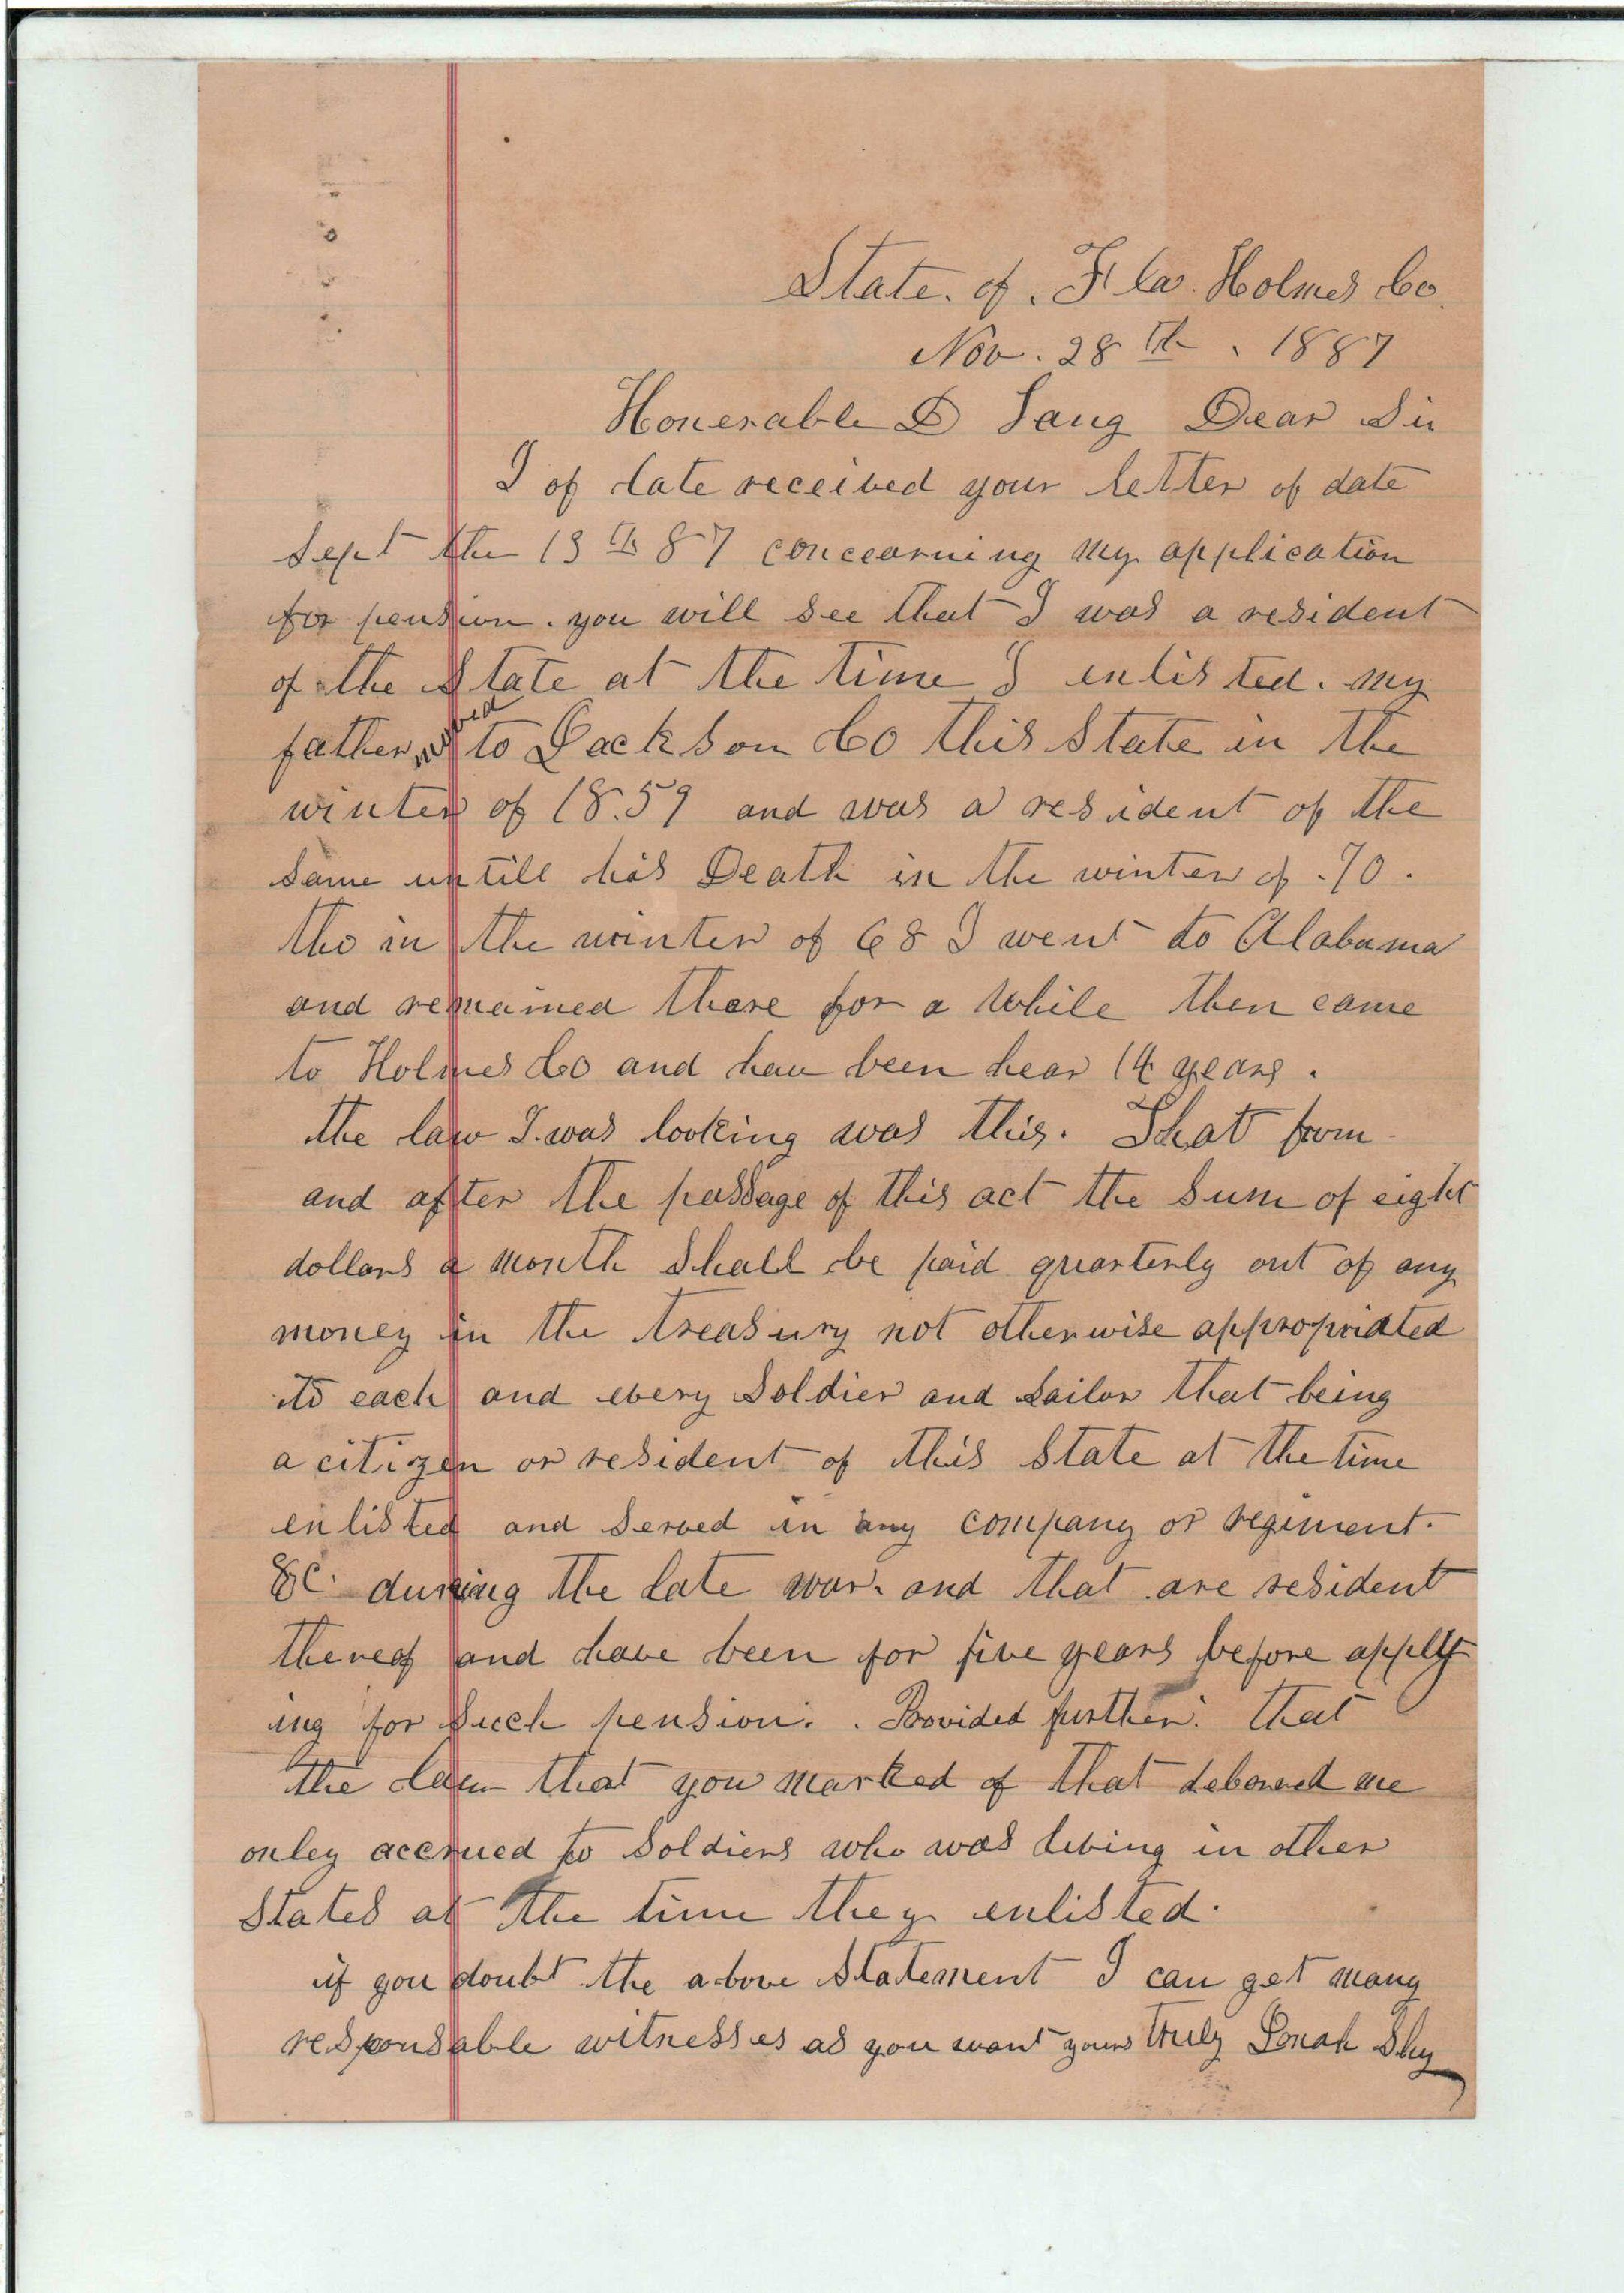 State. of. Fla. Holmes Co.
Nov. 28th. 1887
Honerable D Lang Dear Sir
I of late received your letter of date
Sept the 13th 87 concearning my application
for pension. you will see that I was a resident
of the State at the time I enlisted. my
father moved to Jackson Co this State in the
winter of 18.59 and was a resident of the
same untill his Death in the winter of .70.
tho in the winter of 68 I went to Alabama
and remained there for a while then came
to Holmes Co and hav been hear 14 years.
the law I was looking was this. That from
and after the passage of this act the sum of eight
dollars a month shall be paid quarterly out of any
money in the treasury not otherwise appropriated
to each and every soldier and sailor that being
a citizen or resident of this State at the time
enlisted and served in any company or regiment.
&C. during the late war. and that are resident
thereof and have been for five years before apply
ing for such pension. . Provided further. that
the law that you marked of that debared me
onley accrued to soldiers who was living in other
states at the time they enlisted.
if you doubt the above statement I can get many
responsable witnesses as you want yours truly Jonah Shy